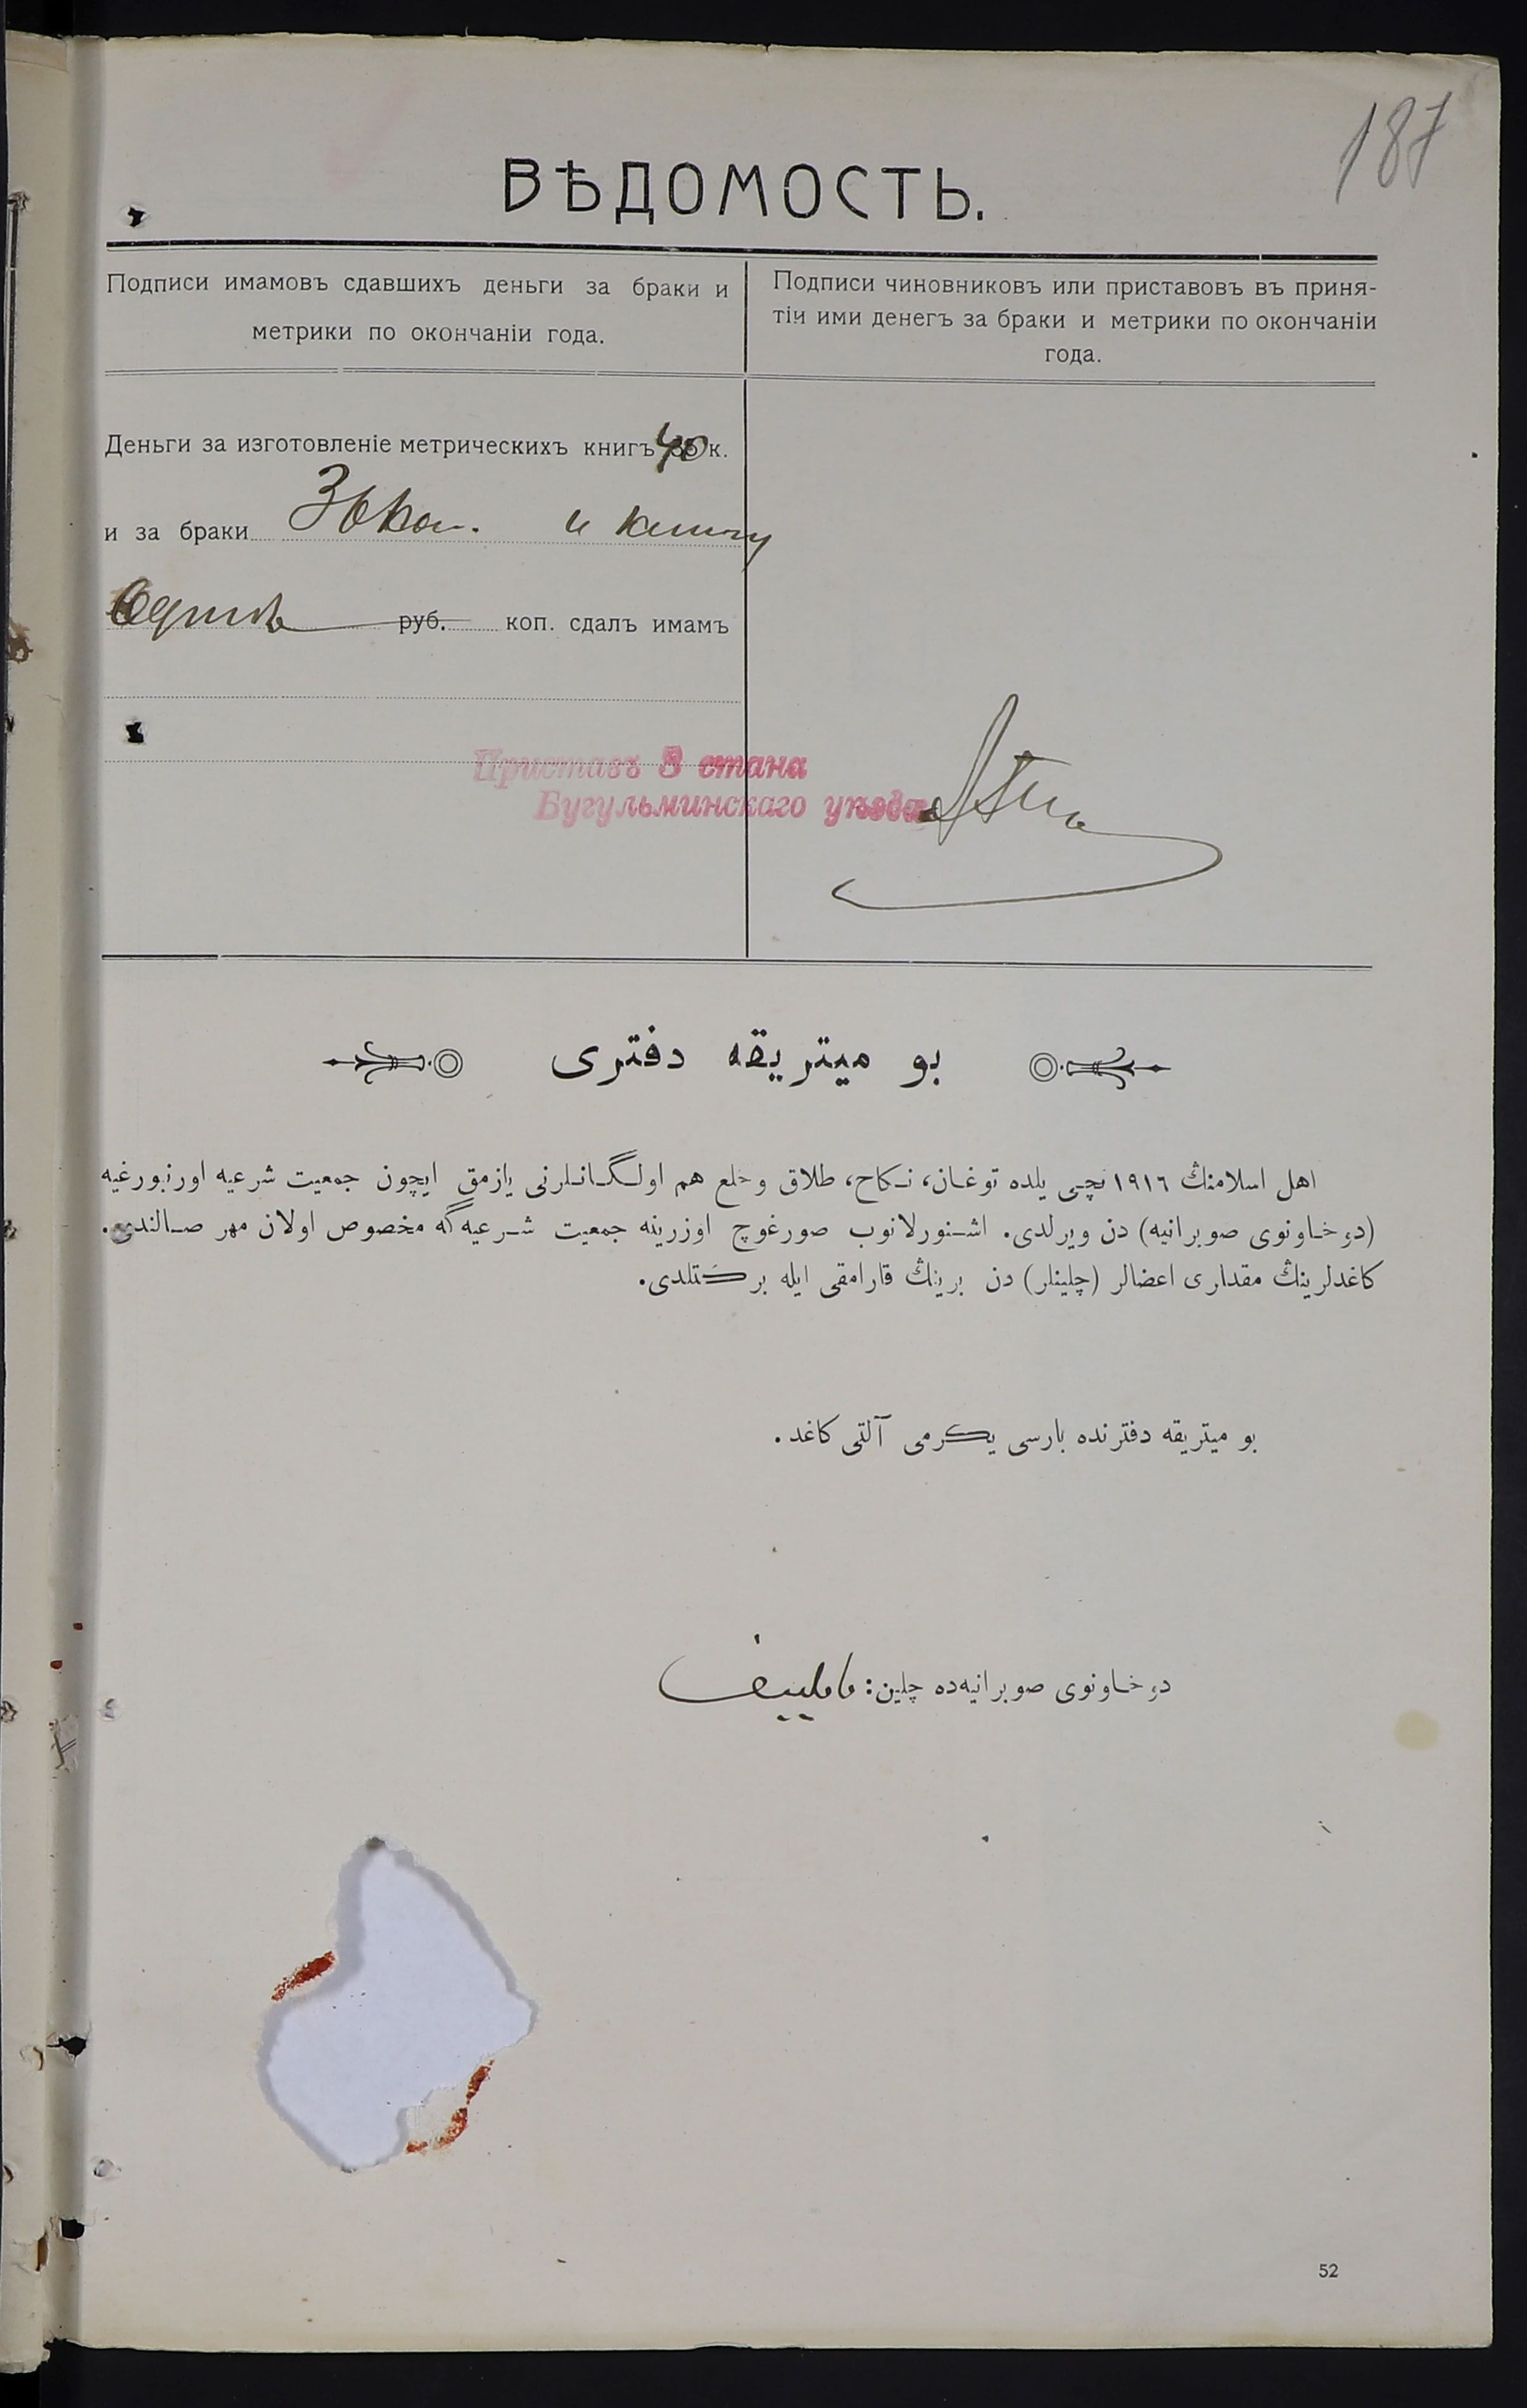 187
ВѢДОМОСТЬ.
Подписи имамовъ сдавшихъ деньги за браки и
метрики по окончаніи года.
Подписи чиновниковъ или приставовъ въ приня-
тіи ими денегъ за браки и метрики по окончаніи
года.
Деньги за изготовленіе метрическихъ книгъ 40 к.
и за браки 36 коп. и книгу
руб. коп. сдалъ имамъ
Приставъ 3 стана
Бугульминскаго уѣзда
بو ميتريقه دفترى
اهل اسلامنڭ ١٩١٦ نچى يلده توغان، نكاح، طلاق و خلع هم اولگانلرنى يازمق ايچون جمعيت شرعيه اورنبورغيه
(دوخاونوى صوبرانيه) دن ويرلدى. اشنورلانوب صورغوچ اوزرينه جمعيت شرعيه گه مخصوص اولان مهر صالندى.
كاغدلرينڭ مقدارى اعضالر (چلينلر) دن برينڭ قارامقى ايله بركتلدى.
بو ميتريقه دفترنده بارسى يكرمى آلتى كاغد.
دوخاونوى صوبرانيه‌ده چلين:
52